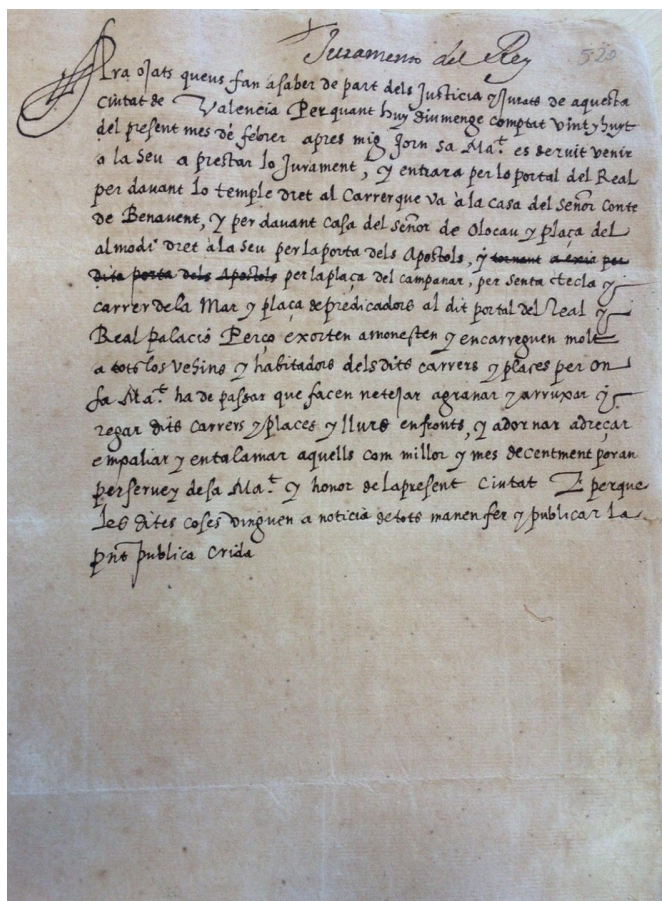 Juramento del Rey 520
Ara ojats queus fan à saber de part dels Justicia y Jurats de aquesta
Ciutat de Valencia Per quant huy diumenge comptat vint y huyt
del present mes de febrer apres mig jorn sa Ma.t es servit venir
a la Seu a prestar lo Jurament, y entrara per lo portal del Real
per davant lo temple dret al Carrer que va à la casa del Señor Conte
de Benavent, y per davant casa del señor de Olocau y plaça del
almodi dret à la Seu per la porta dels Apostols, y tornant a exir per
dita porta dels Apostols per la plaça del campanar, per senta tecla y
carrer de la Mar y plaça de predicadors al dit portal del Real y
Real palacio Perço exorten amonesten y encarreguen molt
a tots los vehins y habitadors dels dits carrers y places per on
sa Ma.t ha de passar que facen netejar agranar y arruxar y
regar dits carrers y places y llurs enfronts, y adornar adreçar
empaliar y entalamar aquells com millor y mes decentment poran
per servey de sa Ma.t y honor de la present Ciutat E perque
les dites coses vinguen a noticia de tots manen fer y publicar la
pnt publica crida